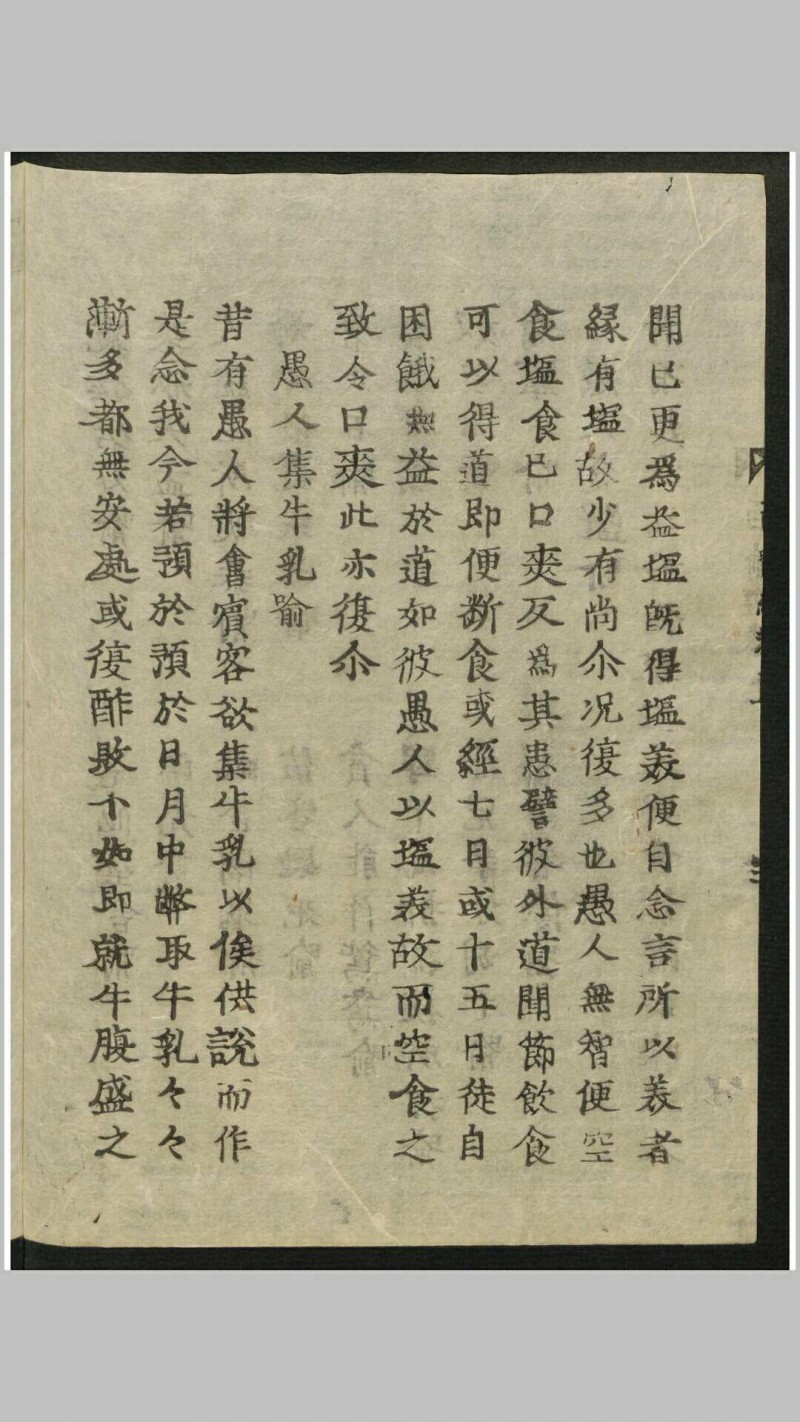 聞已更爲益塩旣得塩羙便自念言所以羙者
緣有塩故少有尚尒况復多也愚人無智便空
食塩食已口爽反爲其患譬彼外道聞節飲食
可以得道即便斷食或經七日或十五日徒自
困餓無益於道如彼愚人以塩羙故而空食之
致令口爽此亦復尒
愚人集牛乳喻
昔有愚人將會賓客欲集牛乳以俟供說而作
是念我今若預於預於日月中弊取牛乳々々
漸多都無安處或復酢敗个如即就牛腹盛之